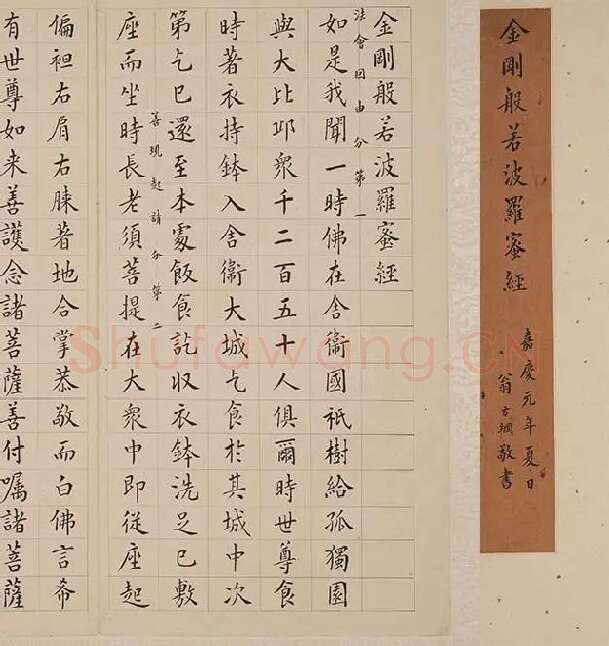 金剛般若波羅蜜經
嘉慶元年夏日
翁方綱敬書
金剛般若波羅蜜經
法會因由分第一
如是我聞一時佛在舍衞國祇樹給孤獨園
與大比邱衆千二百五十人俱爾時世尊食
時著衣持鉢入舍衞大城乞食於其城中次
第乞已還至本處飯食訖收衣鉢洗足已敷
座而坐時長老須菩提在大衆中即從座起
善現起請分第二
偏袒右肩右膝著地合掌恭敬而白佛言希
有世尊如来善護念諸菩薩善付囑諸菩薩
Shufawang.CN